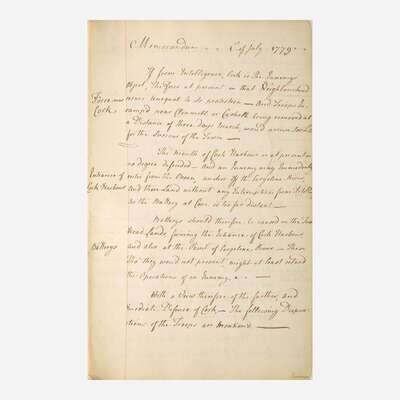 Memorandum 2d July 1779
If from Intelligence, Cork is the Enemys
Object, The Force at present in that Neighbourhood
seems unequal to its protection - And Troops En-
Force near
Cork
camped near Clonmell or Corbeth being removed at
a Distance of three Days March, would arrive too late
for the Succour of the Town
The Mouth of Cork Harbour is at present in
no degree defended - and an Enemy may Immediately
Entrance of
Cork Harbour
enter from the Ocean, anchor off the
and there Land without any Interruption from
as the Battery at Cove is too far distant
Batterys should therefore be raised on the two
Head Lands forming the Entrance of Cork Harbour,
Batterys
and also at the Point of - These
Tho' they would not prevent might at least retard
the Operations of an Enemy,
With a View therefore of the further, and
Immediate Defence of Cork - The following Disposi-
tions of the Troops are mentioned